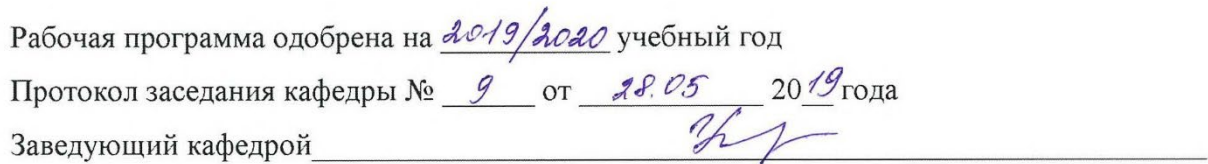 Рабочая программа одобрена на 2019/2020 учебный год
Протокол заседания кафедры № 9 от 28.05 2019 года
Заведующий кафедрой